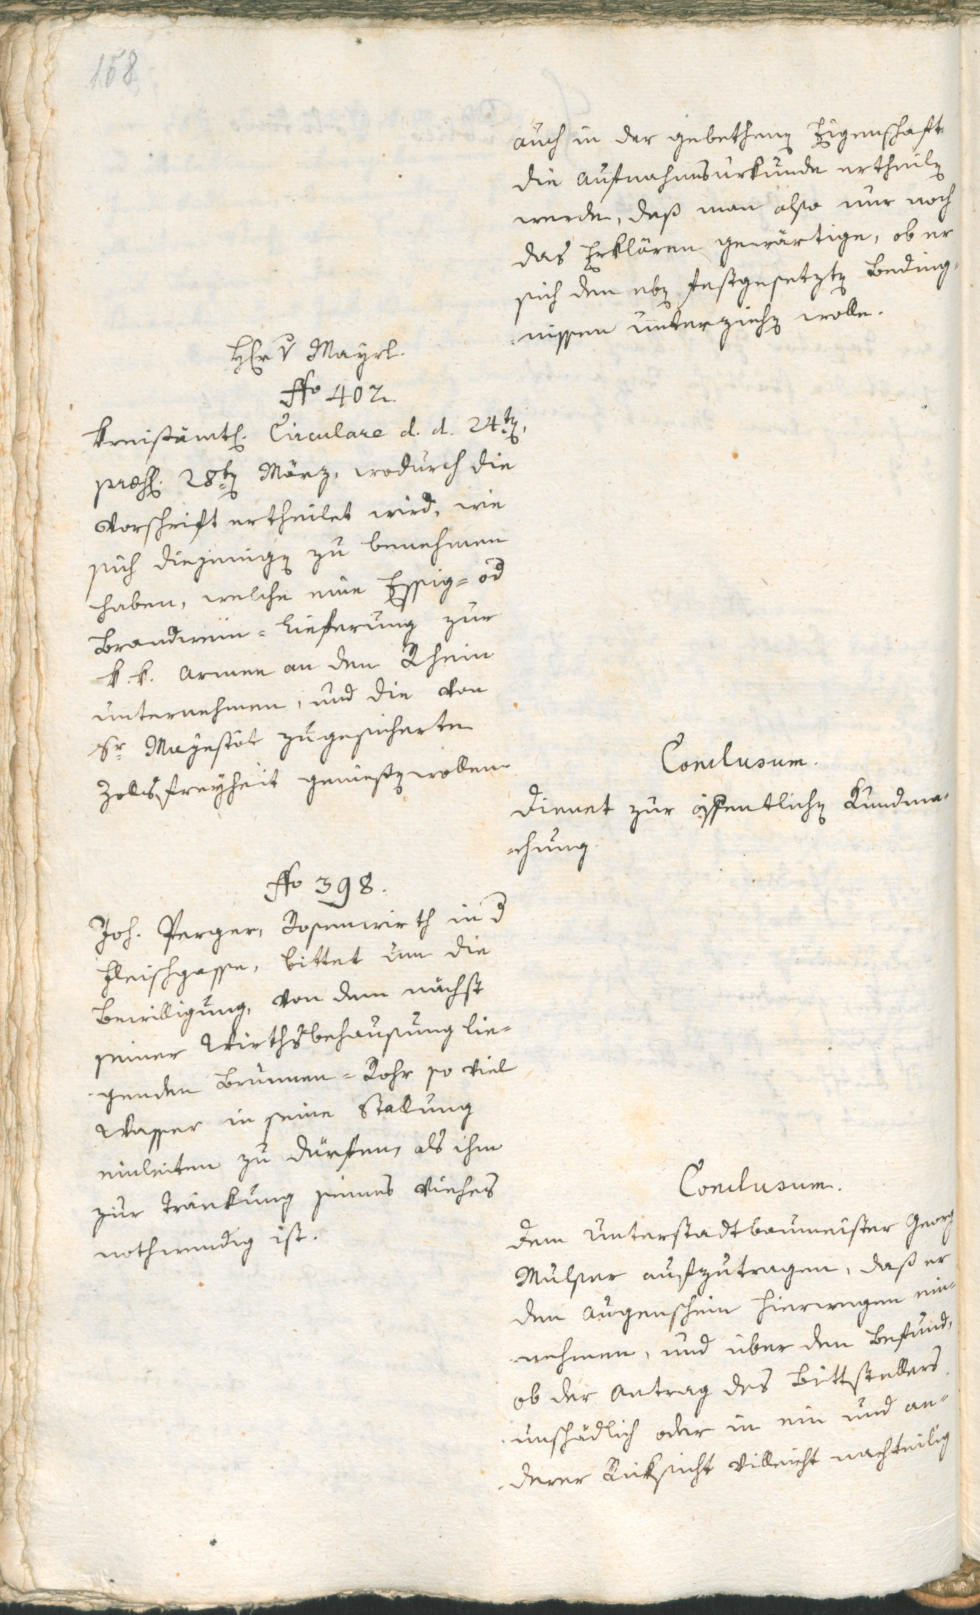 158
auch in der gebethenen Eigenschaft
die Aufnahmsurkunde ertheilet
werde, daß man also nur noch
das Erklären gewärtige, ob er
sich den eben festgesetzten Beding-
nissen unterziehen wolle.
Hr v Mayrl.
Nro 402.
Kreisämtl. Circulare d. d. 24ten,
præs. 28ten März, wodurch die
Vorschrift ertheilet wird, wie
sich diejenigen zu benehmen
haben, welche eine Essig= od
Brandwein=Lieferung zur
k. k. Armee an den Rhein
unternehmen, und die von
Sr Mayestät zugesicherte
Zollsfreyheit genießen wollen.
Conclusum.
Dienet zur öffentlichen Kundma-
-chung.
Nro 398.
Joh. Perger, Rosenwirth in d
Fleischgasse, bittet um die
Bewilligung, von dem nächst
seiner Wirthsbehausung lie-
genden Brunnen=Rohr so viel
Wasser in seine Stallung
einleiten zu dürfen, als ihm
zur Tränkung seines Viehes
nothwendig ist.
Conclusum.
Dem Unterstadtbaumeister Georg
Mulser aufzutragen, daß er
den Augenschein hierwegen ein-
nehmen, und über den Befund,
ob der Antrag des Bittstellers
unschädlich oder in ein und an-
derer Rücksicht villeicht nachteilig